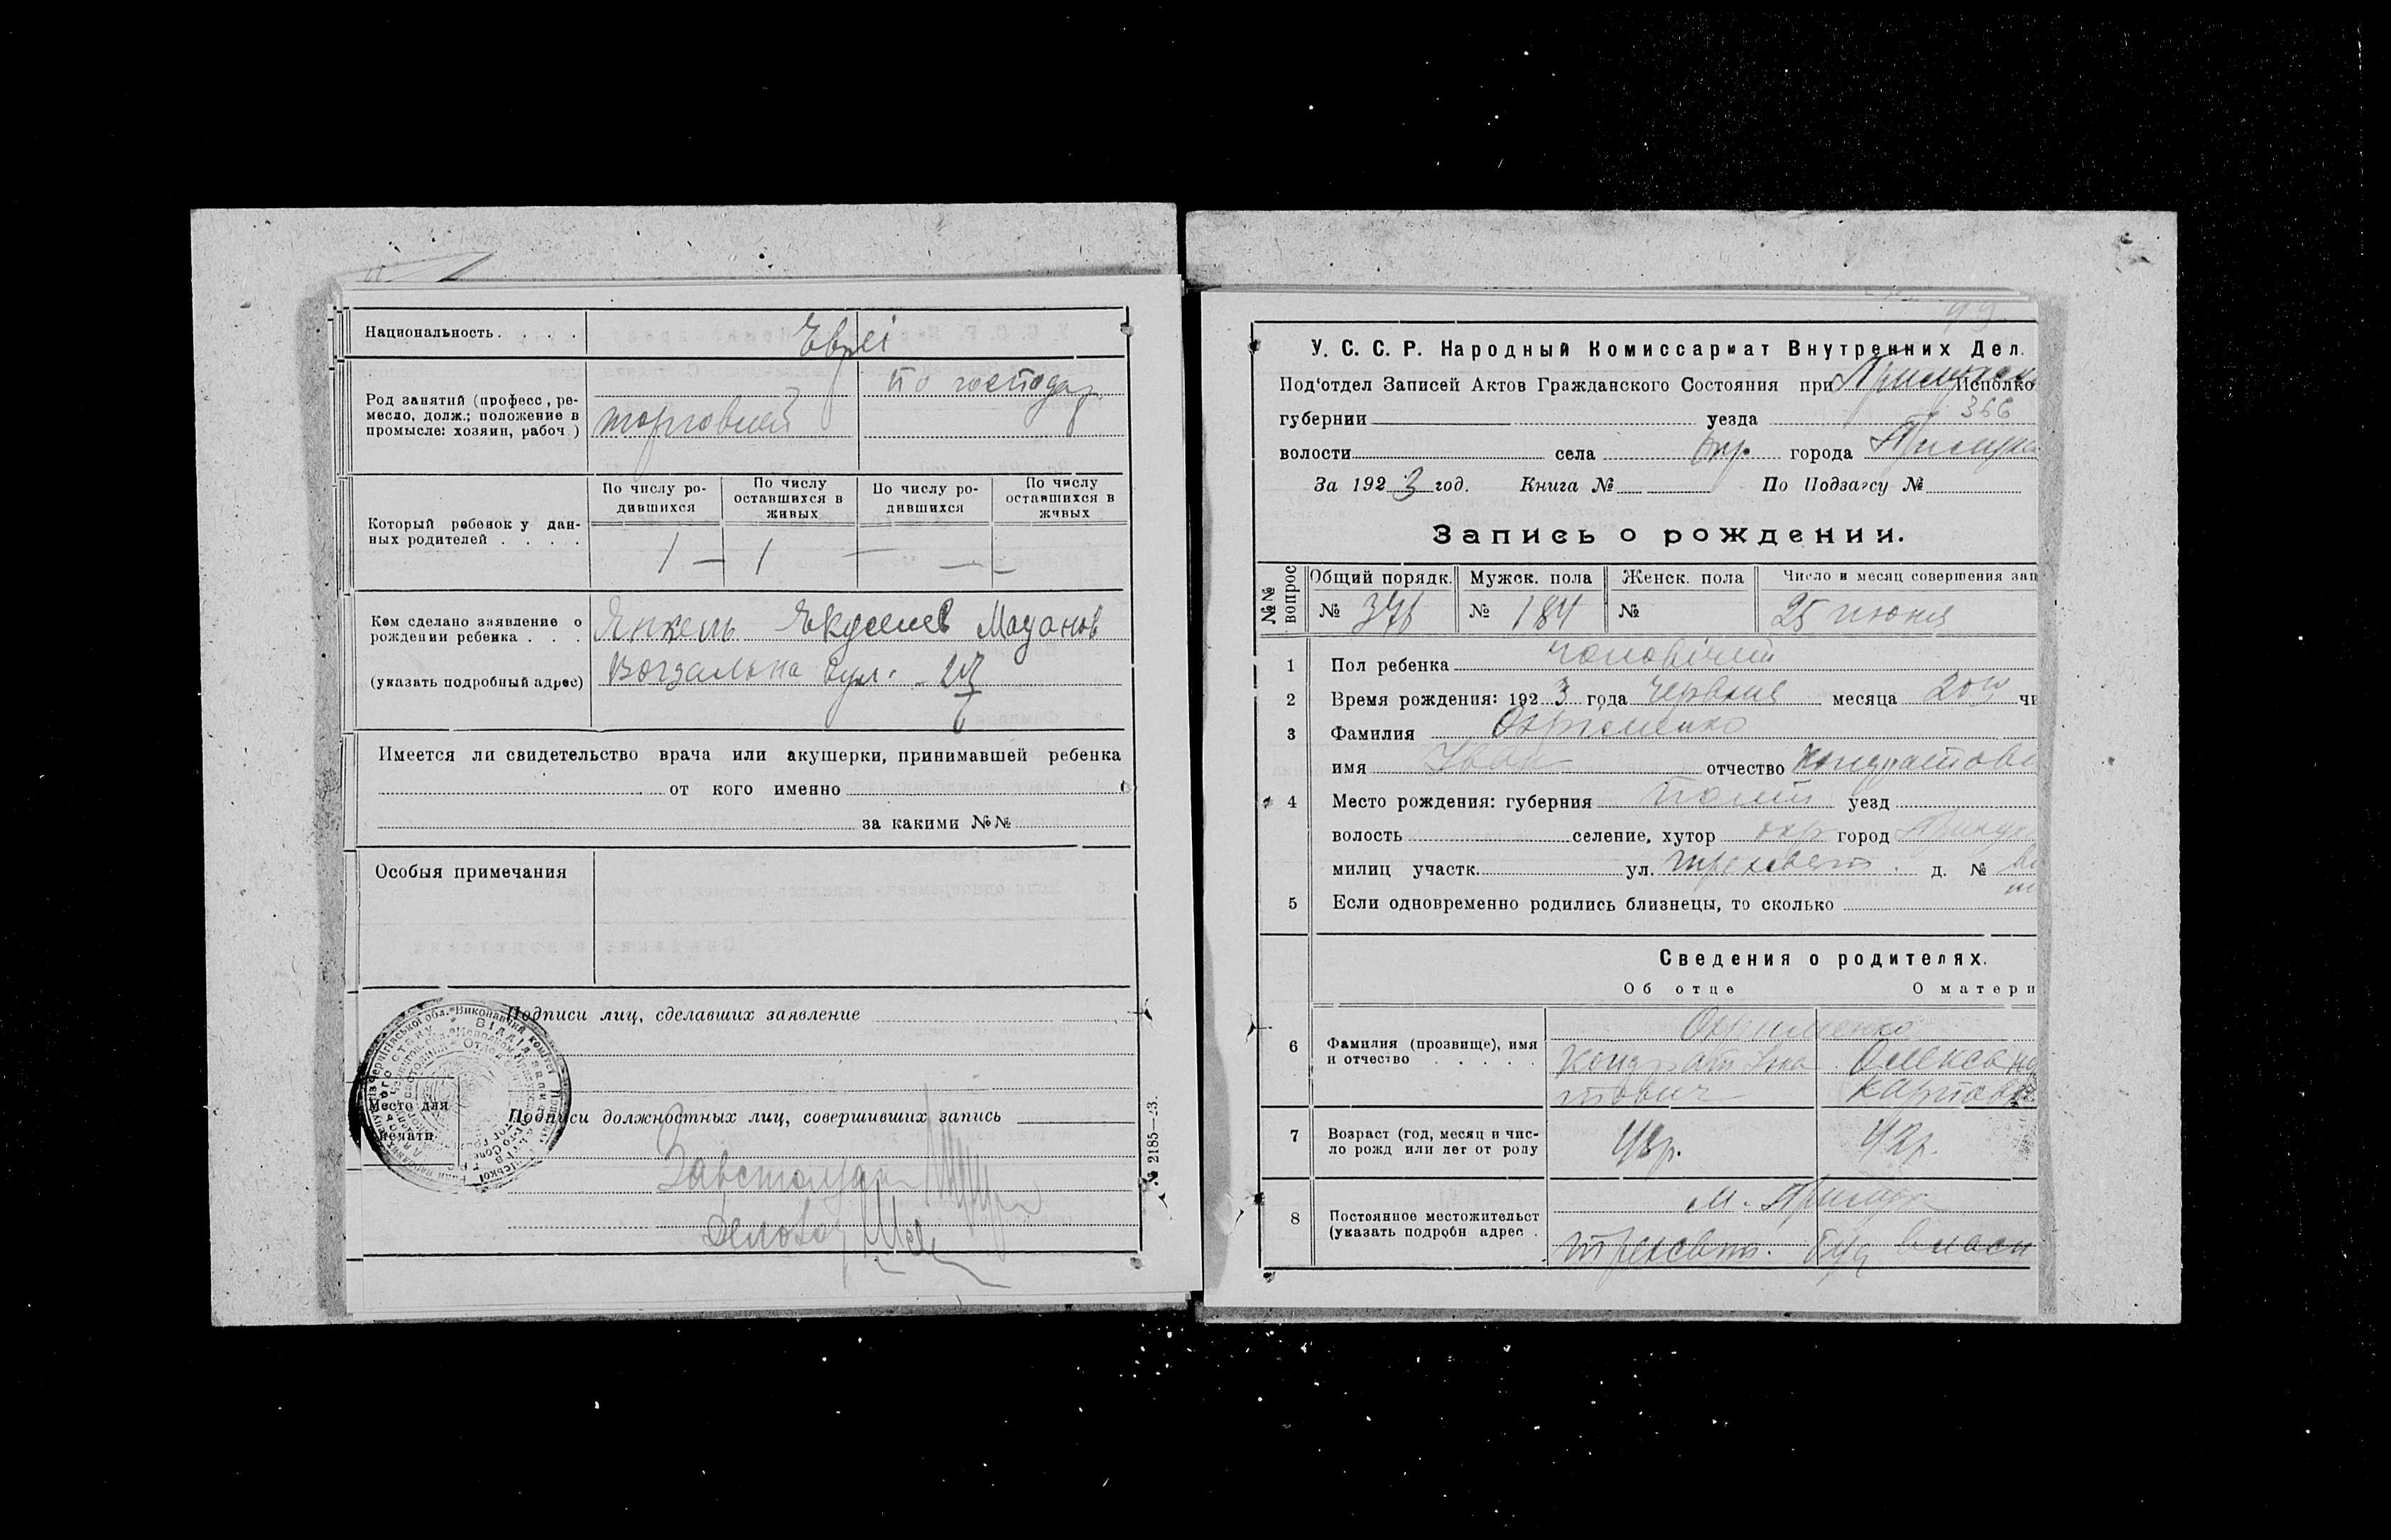 Национальность.
Євреі
Род занятий (професс, ре-
месло, долж.; положение в
промысле: хозяин, рабоч)
торговией
по господар.
Который ребенок у дан-
ных родителей
По числу ро-
дившихся
По числу
оставшихся в
живых
По числу ро-
дившихся
По числу
оставшихся в
живых
1 — 1 — — —
Кем сделано заявление о
рождении ребенка
(указать подробный адрес)
Янкель
Вокзальна вул.
Имеется ли свидетельство врача или акушерки, принимавшей ребенка
от кого именно
за какими №№
Особыя примечания
Подписи лиц, сделавших заявление
Место для
печати
Подписи должностных лиц, совершивших запись
Завстолом
Деловод
№ 2185—23.
99
У. С. С. Р. Народный Комиссариат Внутренних Дел.
Под'отдел Записей Актов Гражданского Состояния при Прилуцьк Исполко
губернии уезда 366
волости села окр. города Прилука
За 1923 год. Книга № По Подзагсу №
Запись о рождении.
№№ вопрос
Общий порядк. Мужск. пола Женск. пола Число и месяц совершения зап
№ 376 № 184 № 25 июня
1 Пол ребенка чоловічий
2 Время рождения: 1923 года Червня месяца 20го чи
3 Фамилия Охріменко
имя Іван отчество Кондратови
4 Место рождения: губерния Полт уезд
волость селение, хутор окр город Прилук
милиц участк. ул. д. №
5 Если одновременно родились близнецы, то сколько
Сведения о родителях.
Об отце О матери
6 Фамилия (прозвище), имя
и отчество
Охріменко
Кондрат Олександ
Карповн
7 Возраст (год, месяц и чис-
ло рожд или лет от роду
42р.
8 Постоянное местожительст
(указать подробн адрес
м. Прилука
буд власн